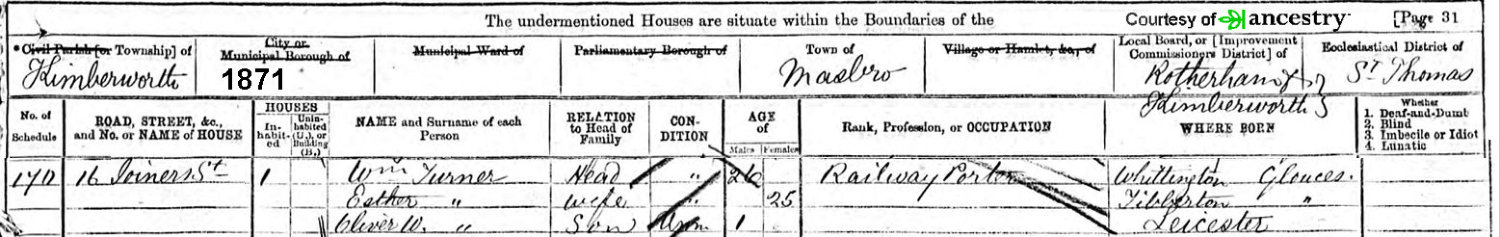 The undermentioned Houses are situate within the Boundaries of the Courtesy of ancestry [Page 31
Civil Parish [or Township] of City or Municipal Borough of Municipal Ward of Parliamentary Borough of Town of Village or Hamlet, &c., of Local Board, or [Improvement Commissioners District] of Ecclesiastical District of
Kimberworth 1871 Masbro Rotherham & Kimberworth St Thomas
No. of Schedule ROAD, STREET, &c., and No. or NAME of HOUSE HOUSES Inhabited Uninhabited (U.), or Building (B.) NAME and Surname of each Person RELATION to Head of Family CONDITION AGE of Males Females Rank, Profession, or OCCUPATION WHERE BORN Whether
1. Deaf-and-Dumb
2. Blind
3. Imbecile or Idiot
4. Lunatic
16 Joiners St 1 Wm Turner Head " 26 Railway Porter Whittington Glouces.
Esther " wife " 25 Tibberton "
Oliver W. " Son Unm 1 Leicester